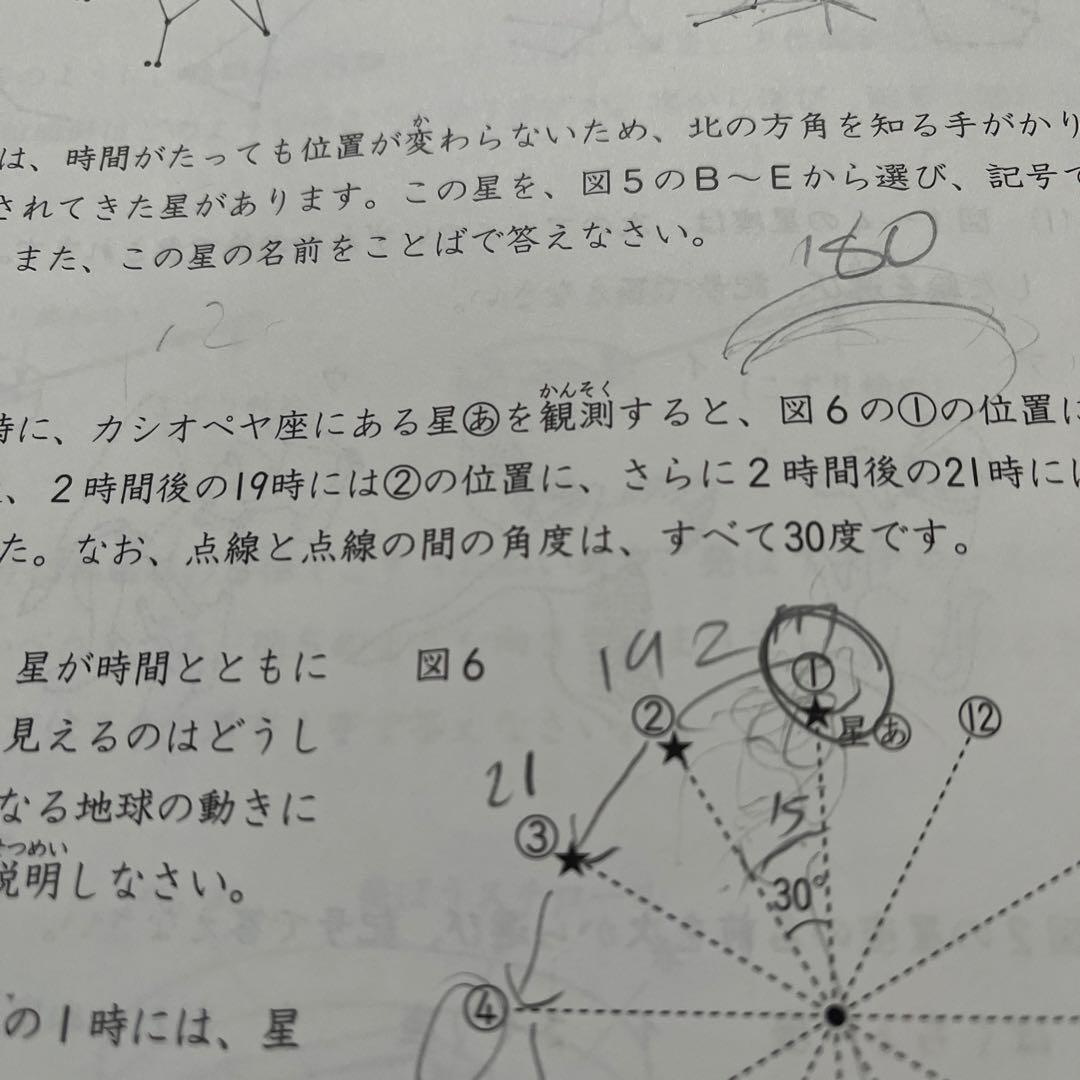 は、時間がたっても位置が変わらないため、北の方角を知る手がかり
か
されてきた星があります。この星を、図5のB〜Eから選び、記号で
また、この星の名前をことばで答えなさい。
180
12
時に、カシオペヤ座にある星あを観測すると、図6の①の位置に
かんそく
、2時間後の19時には②の位置に、さらに2時間後の21時には
た。なお、点線と点線の間の角度は、すべて30度です。
星が時間とともに
見えるのはどうし
なる地球の動きに
せつめい
説明しなさい。
の1時には、星
図6
19
2
17
①
②
星あ
⑫
21
③
15
30°
④